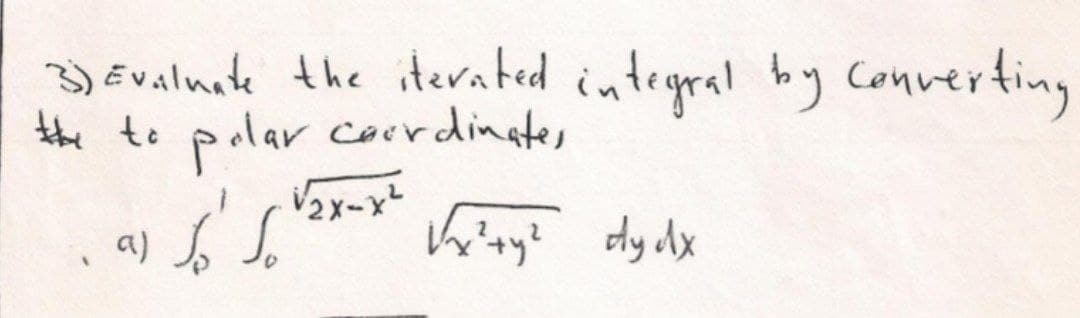 3) Evaluate the iterated integral by converting
the to polar coordinates
a) ∫₀¹ ∫₀^√(2x-x²) √(x²+y²) dy dx